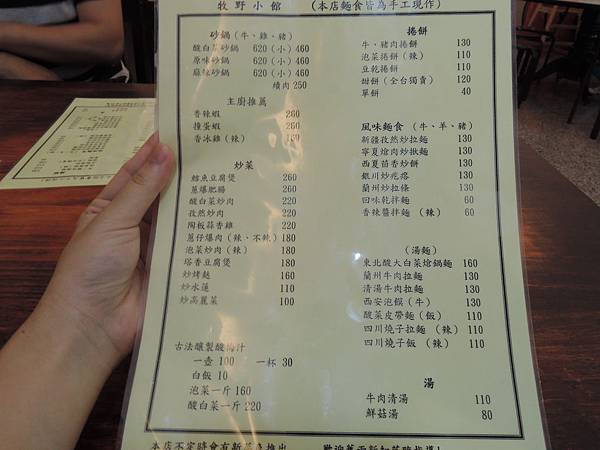 牧野小館 (本店麵食皆為手工現作)
砂鍋(牛、雞、豬)
酸白菜砂鍋 620(小)460
原味砂鍋 620(小)460
麻辣砂鍋 620(小)460
續肉250
主廚推薦
香辣蝦 260
撞蛋蜜 260
香冰雞(辣) 180
炒菜
鱈魚豆腐煲 260
蔥爆肥腸 260
酸白菜炒肉 220
孜然炒肉 220
陶板蒜香雞 220
蔥仔爆肉(辣、不辣) 180
泡菜炒肉(辣) 180
塔香豆腐煲 180
炒烤麩 160
炒水蓮 110
炒高麗菜 100
古法釀製酸梅汁
一壺100 一杯30
白飯10
泡菜一斤160
酸白菜一斤220
捲餅
牛、豬肉捲餅 130
泡菜捲餅(辣) 110
豆乾捲餅 110
甜餅(全台獨賣) 120
單餅 40
風味麵食(牛、羊、豬)
新疆孜然炒拉麵 130
寧夏燴肉炒揪麵 130
西夏茴香炒餅 130
銀川炒疙瘩 130
蘭州炒拉條 130
回味乾拌麵 60
香辣醬拌麵(辣) 60
(湯麵)
東北酸大白菜熗鍋麵 160
蘭州牛肉拉麵 130
清湯牛肉拉麵 130
西安泡饃(牛) 130
酸菜皮帶麵(飯) 110
四川燒子拉麵(辣) 110
四川燒子飯(辣) 110
湯
牛肉清湯 110
鮮菇湯 80
本店不定時會有新菜色推出